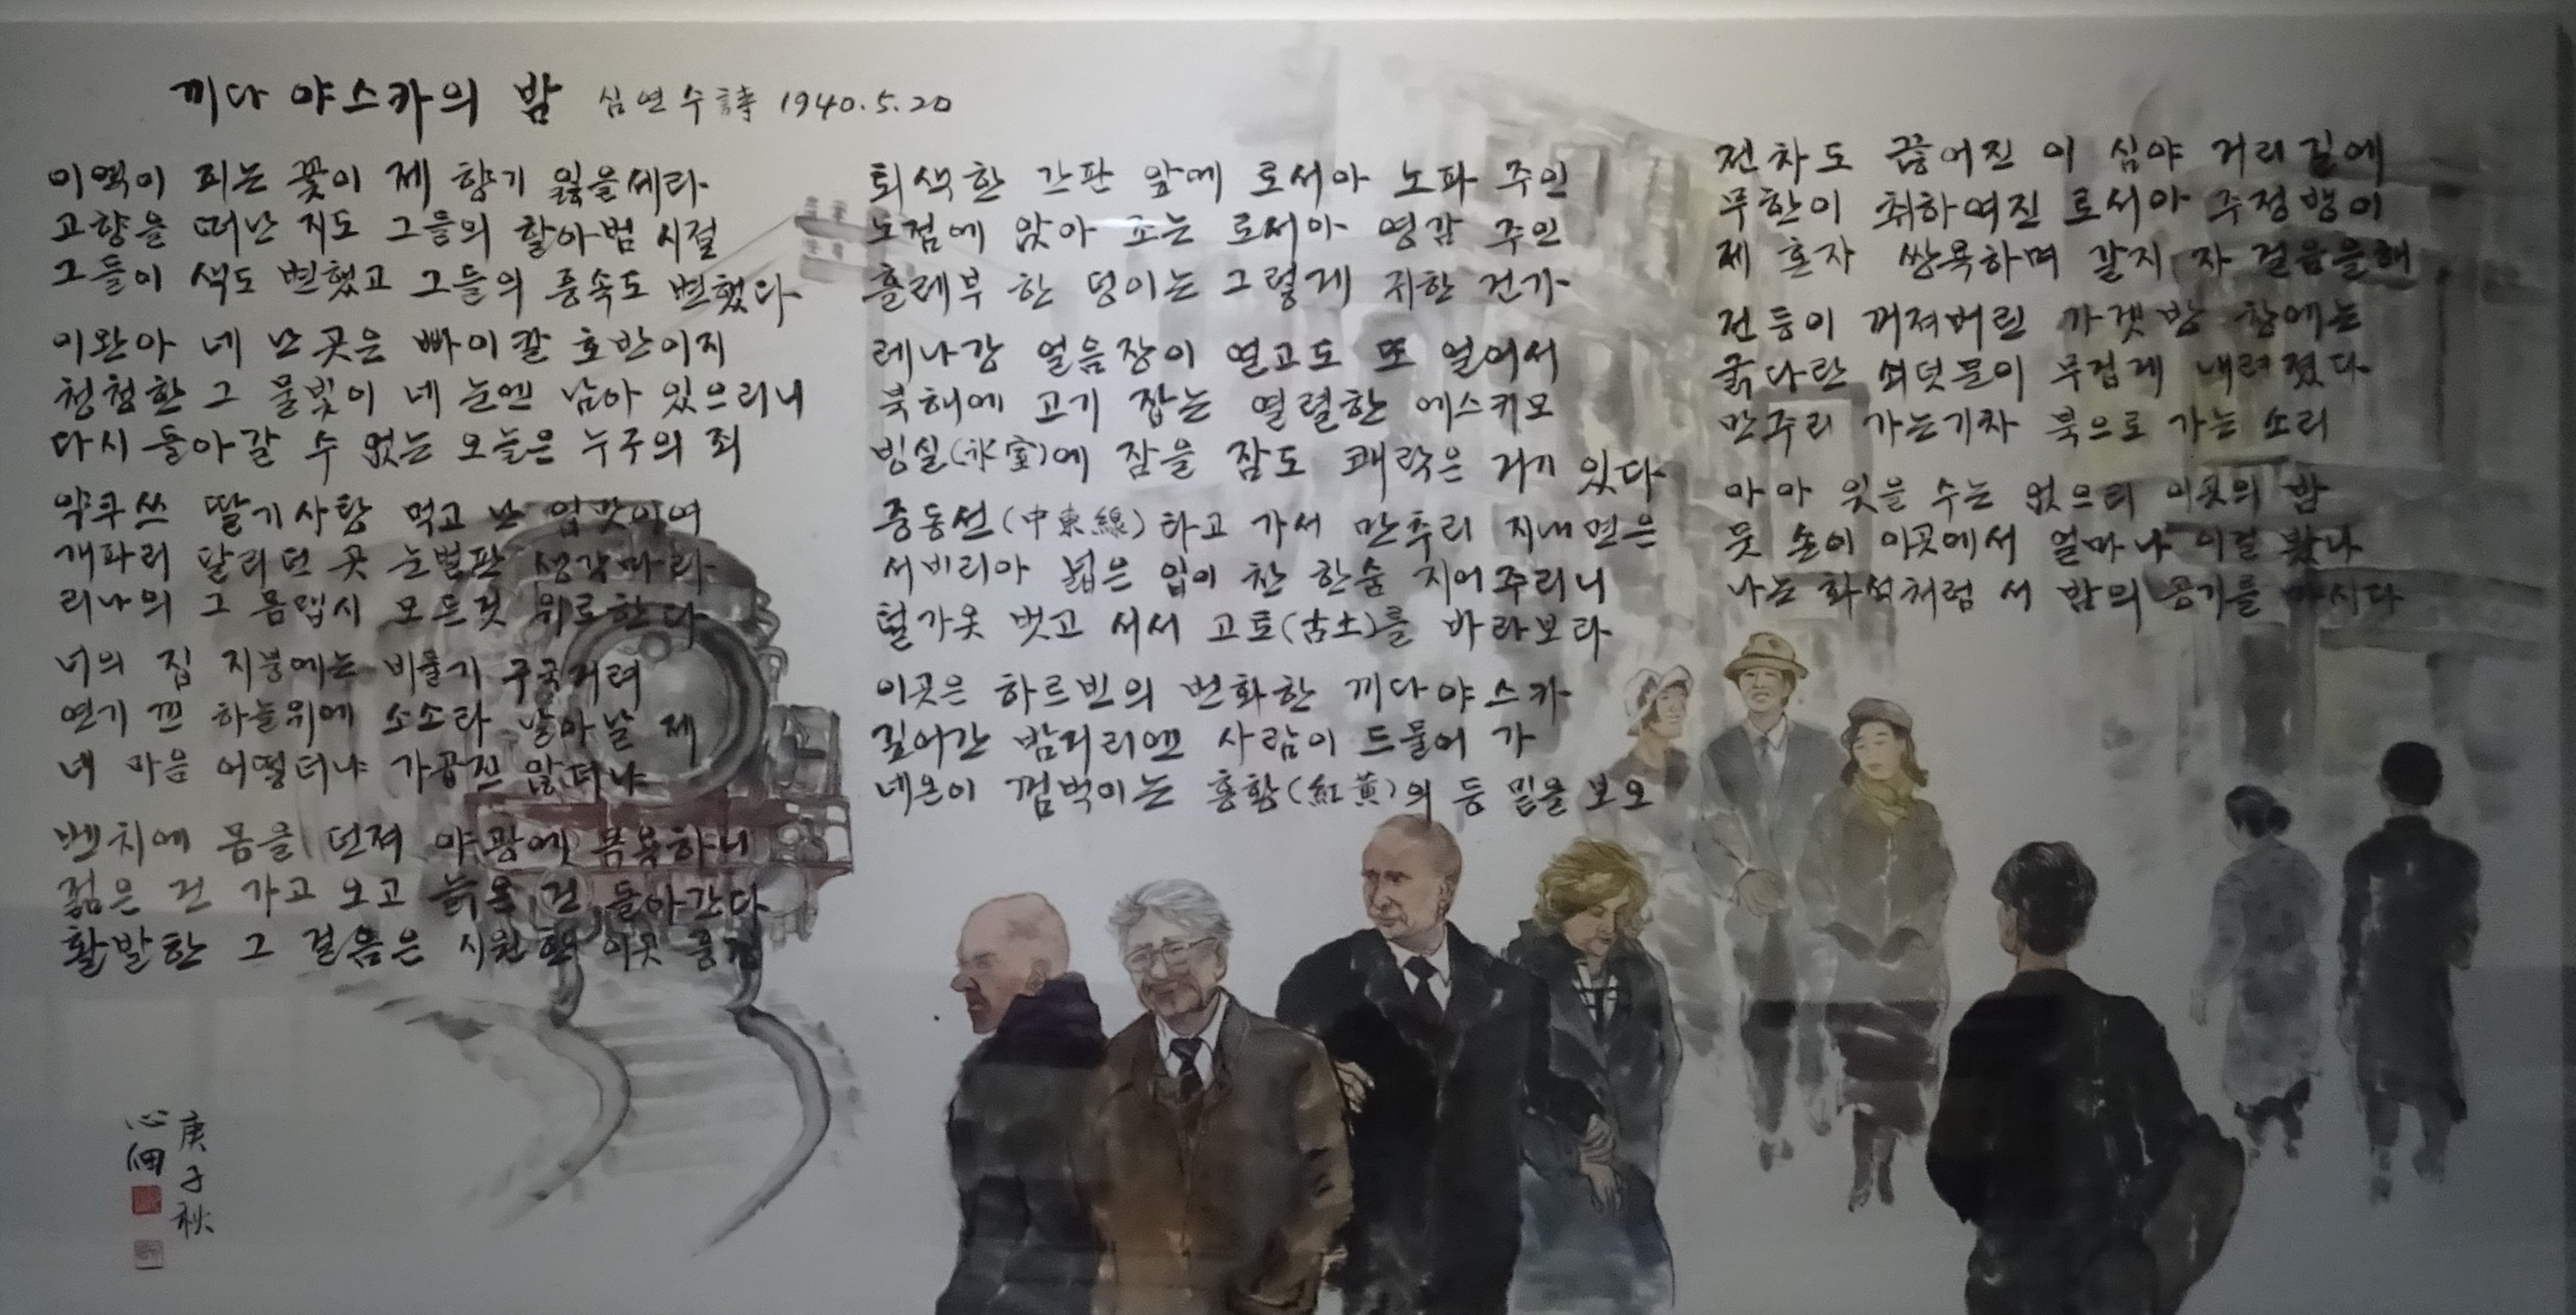 끼다야스카의 밤 심연수 詩 1940.5.20
이역이 피는 꽃이 제 향기 잃을세라
고향을 떠난 지도 그들의 할아범 시절
그들이 색도 변했고 그들의 풍속도 변했다
이완아 네 난 곳은 빠이칼 호반이지
청청한 그 물빛이 네 눈엔 남아 있으리니
다시 돌아갈 수 없는 오늘은 누구의 죄
약쿠쓰 딸기사탕 먹고 난 입맛이여
개파리 달리던 곳 눈벌판 생각마라
리나의 그 몸맵시 모든것 위로한다
너의 집 지붕에는 비둘기 구국거려
연기 낀 하늘위에 소소타 날아날 제
네 마음 어떻더냐 가공진 않더냐
벤치에 몸을 던져 야광에 목욕하니
젊은 건 가고 오고 늙은 건 돌아간다
활발한 그 걸음은 시원한 이곳 풍경
퇴색한 간판 앞에 로서아 노파 주인
노점에 앉아 조는 로서아 영감 주인
흘레부 한 덩이는 그렇게 귀한 건가
레나강 얼음장이 얼고도 또 얼어서
북해에 고기 잡는 열렬한 에스키모
빙실(氷室)에 잠을 잠도 쾌락은 거기 있다
중동선(中東線) 타고 가서 만추리 지내면은
서비리아 넓은 입이 찬 한숨 지어주리니
털가옷 벗고 서서 고토(古土)를 바라보라
이곳은 하르빈의 번화한 끼다야스카
깊어간 밤거리엔 사람이 드물어 가
네온이 껌벅이는 홍황(紅黃)의 등 밑을 보오
전차도 끊어진 이 심야 거리길에
무한이 취하여진 로서아 주정뱅이
제 혼자 쌍욕하며 갈지 자 걸음을해
전등이 꺼져버린 가겟방 창에는
굵다란 쇠덧문이 무겁게 내려졌다
만주리 가는기차 북으로 가는 소리
아아 잊을 수는 없으리 이곳의 밤
뭇 손이 이곳에서 얼마나 이걸 봤나
나는 화석처럼 서 밤의 공기를 마시다
庚子秋
心佃